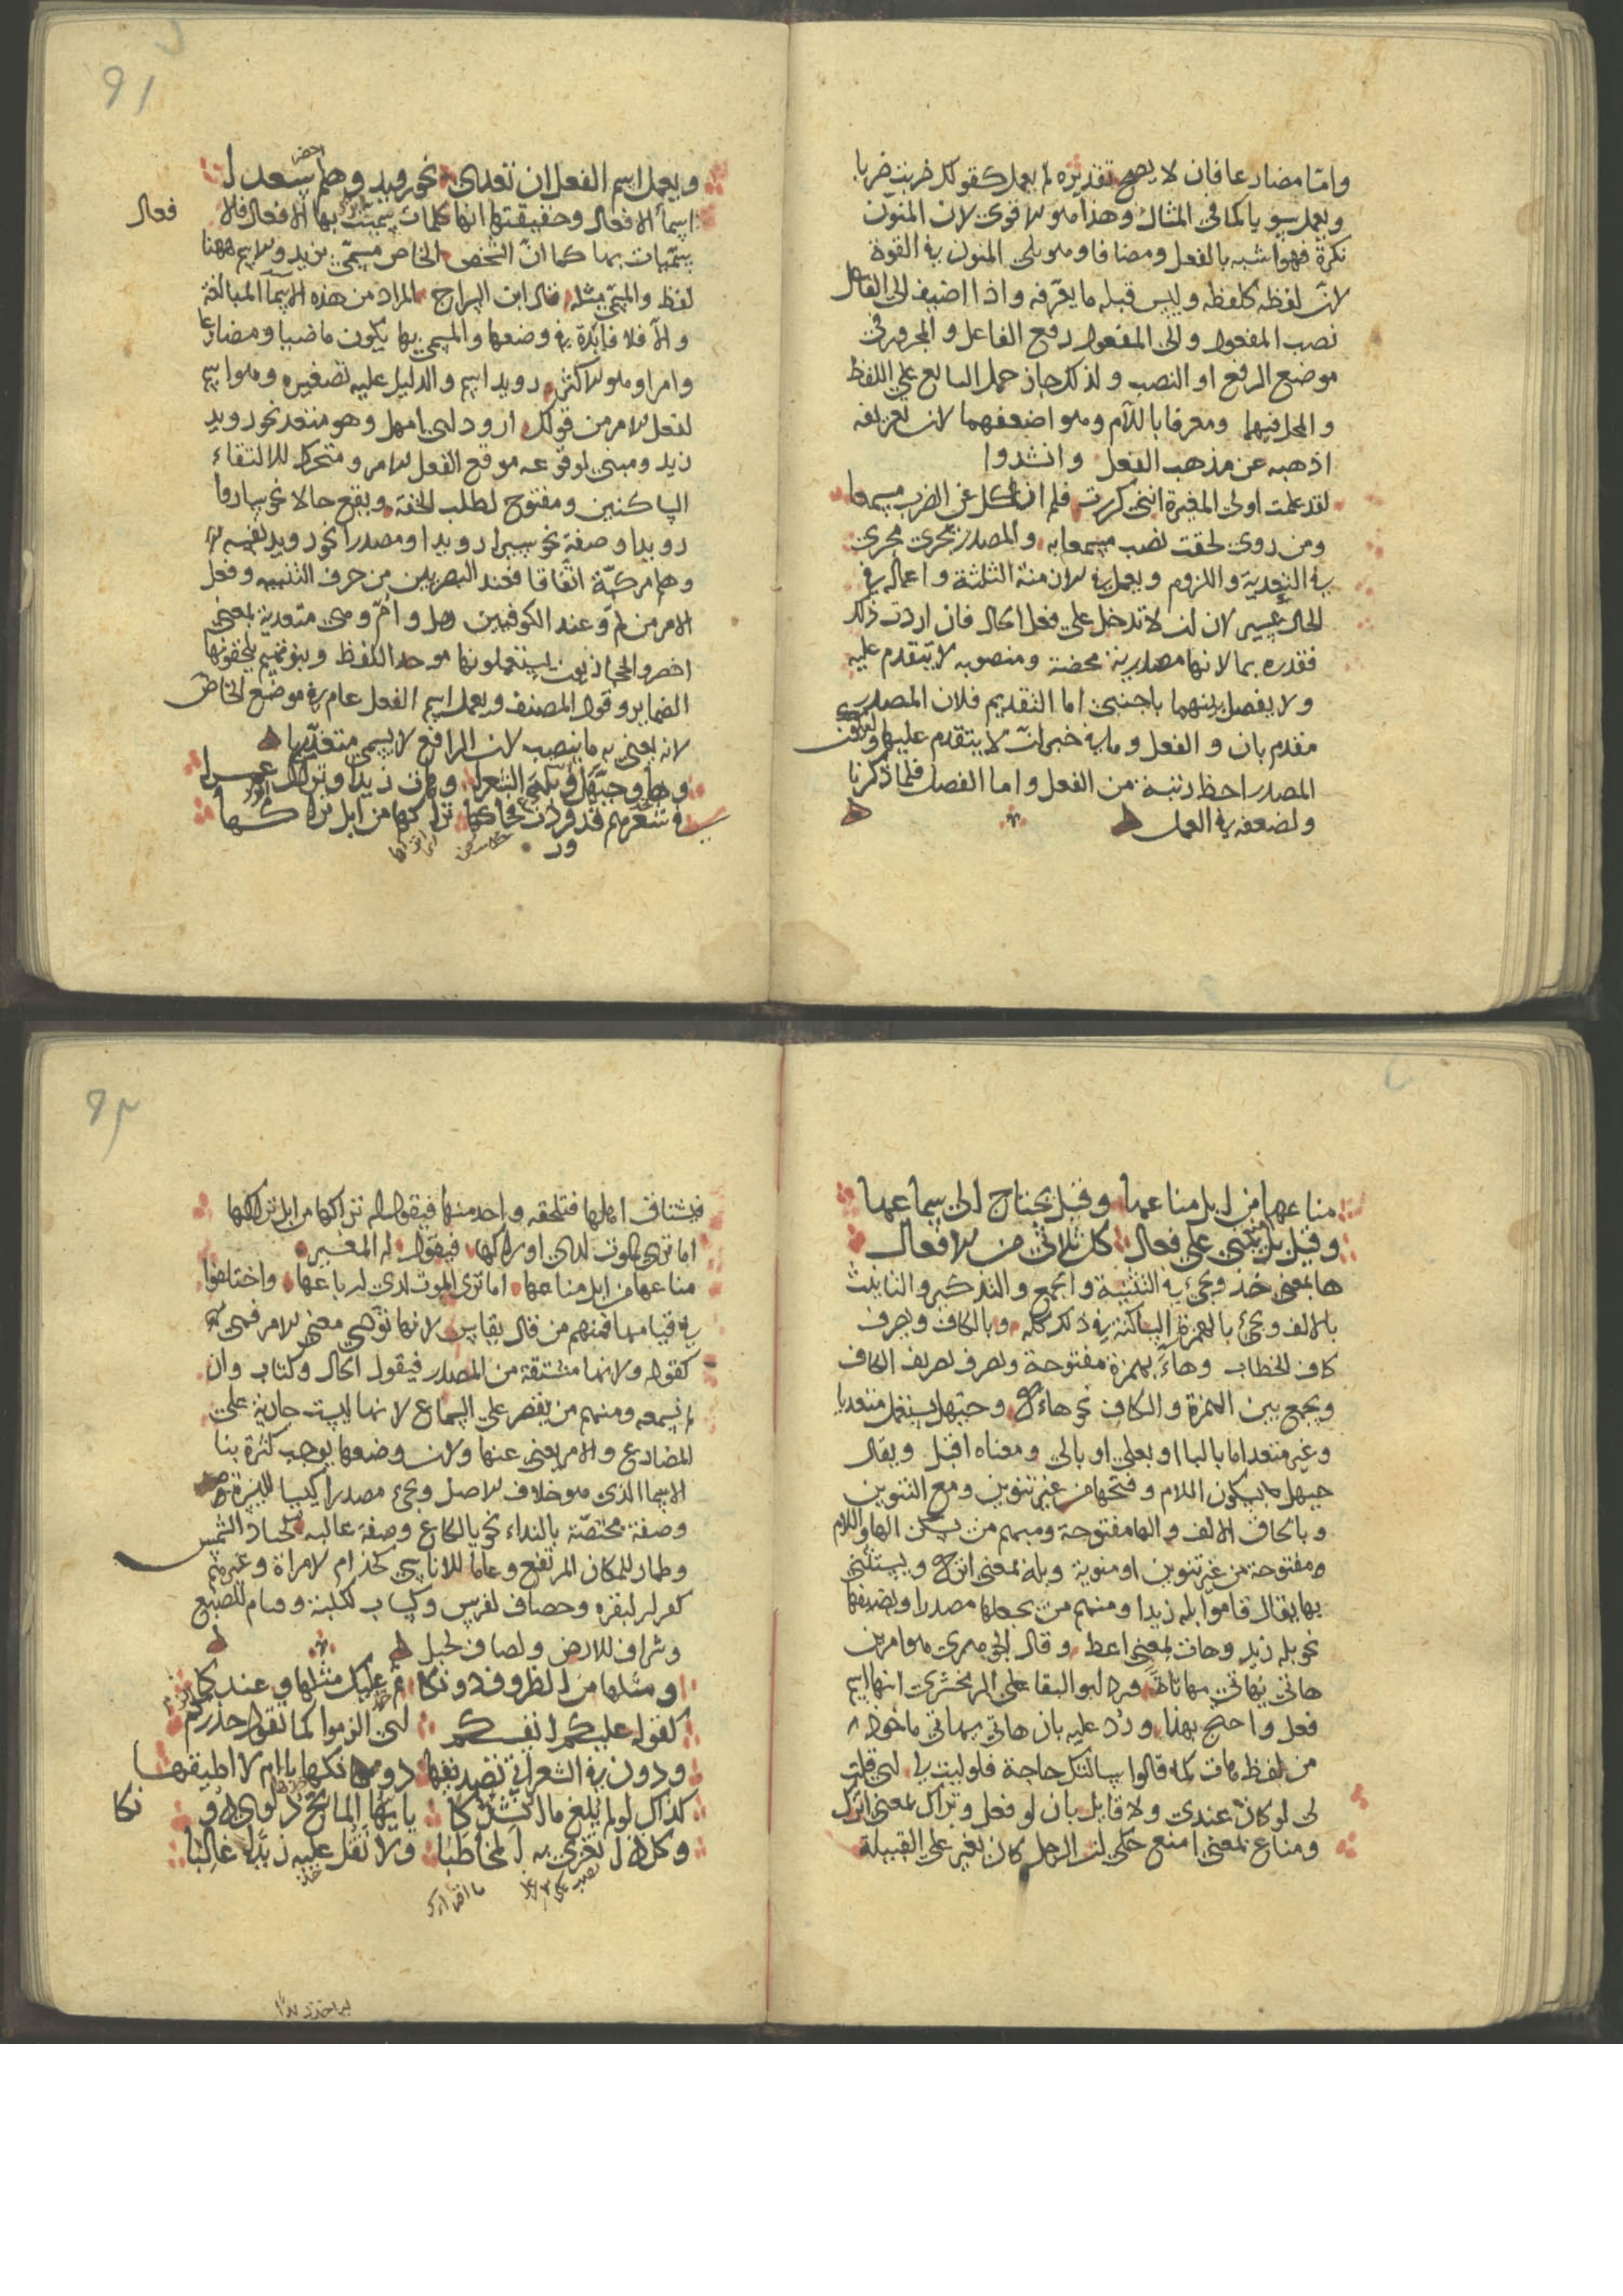 واما مضارعا فان لا يصح تقديره لم يعمل كقولك ضربت ضربا
ويعمل سويا كما في المثال وهذا هو الاقوى لان المنون
نكرة فهو اشبه بالفعل ومضافا وهو يلي المنون في القوة
لان لفظه كلفظه وليس قبله ما يعرفه واذا اضيف الى الفاعل
نصب المفعول والى المفعول رفع الفاعل والمجرور في
موضع الرفع او النصب ولذلك جاز حمل التابع على اللفظ
والمحل فيهما ومعرفا باللام وهو اضعفهما لان تعريفه
اذهبه عن مذهب الفعل وانشدوا
لقد علمت اولى المغيرة انني كررت فلم انكل عن الضرب مسمعا
ومن روى لحقت نصب مسمعا به والمصدر يجرى مجرى
في التعدية واللزوم ويعمل في الازمنة الثلثة واعماله في
الحال عسير لان ان لا تدخل على فعل الحال فان اردت ذلك
فقدره بما لانها مصدرية محضة ومنصوبه لا يتقدم عليه
ولا يفصل بينهما باجنبي اما التقديم فلان المصدر
مقدم بان والفعل وما في خبر ان لا يتقدم عليها
المصدر احط رتبة من الفعل واما الفصل فلما ذكرنا
ولضعفه في العمل
91
ويعمل اسم الفعل ان تعدى نحو رويد وهلم سعدا
احضر
اسماء الافعال وحقيقتها انها كلمات سميت بها الافعال فالا
فعال
مسميات بها كما ان الشخص الخاص مسمى بزيد والاسم ههنا
لفظ والمسمى مثله قال ابن السراج المراد من هذه الاسماء المبالغة
والا فلا فايدة في وضعها والمسمى بها يكون ماضيا ومضارعا
وامرا وهو الاكثر رويد اسم والدليل عليه تصغيره وهو اسم
لفعل الامر من قولك ارود اى امهل وهو متعد نحو رويد
زيد ومبني لوقوعه موقع الفعل الامر ومتحرك لالتقاء
الساكنين ومفتوح لطلب الخفة ويقع حالا نحو ساروا
رويدا وصفة نحو سيرا رويدا ومصدرا نحو رويد نفسه
وهلم مركبة اتفاقا فعند البصريين من حرف التنبيه وفعل
الامر من لم وعند الكوفيين هل وام وهي متعدية بمعنى
احضر والحجازيون يستعملونها موحد اللفظ وبنو تميم يلحقونها
الضماير وقول المصنف ويعمل اسم الفعل عام في موضع الخاص
لانه يعني به ما ينصب لان الرافع لا يسمى متعديا
وها وحيهل وبله الشعرا وهات زيدا وتراك عمرا
في شعرهم قد وردت محاكها تراكها من ابل تراكها
مناعها من ابل مناعها وقيل يحتاج الى سماعها
وقيل بل يبنى على فعال كل ثلاثي من الافعال
ها بمعنى خذ ويجيء في التثنية والجمع والتذكير والتانيث
بالالف ويجيء بالهمزة الساكنة في ذلك كله وبالكاف ويصرف
كاف الخطاب وهاء بهمزة مفتوحة وتصرف تصريف الكاف
ويجمع بين الهمزة والكاف نحو هاءك وحيهل يستعمل متعديا
وغير متعد اما بالبا او بعلى او بالى ومعناه اقبل ويقال
حيهل بسكون اللام وفتحها من غير تنوين ومع التنوين
وبالحاق الالف والها مفتوحة ومنهم من يسكن الها واللام
مفتوحة من غير تنوين او منونة وبله بمعنى اترك ويستثنى
بها يقال قاموا بله زيدا ومنهم من يجعلها مصدرا ويضيفها
نحو بله زيد وهات بمعنى اعط وقال الجوهري هو امر من
هاتى يهاتي مهاتاة ورد ابو البقا على الزمخشري انها اسم
فعل واحتج بهذا ورد عليه بان هاتى يهاتي ماخوذ
من لفظ هات كما قالوا سالتك حاجة فلوليت لي اى قلت
لي لو كان عندي ولا قايل بان لو فعل وتراك بمعنى اترك
ومناع بمعنى امنع حكي ان الرجل كان يغير على القبيلة
92
فيستاق ابلها فتلحقه واحد منها فيقول له تراكها من ابل تراكها
اما ترى الموت لدى اوراكها فيقول له المغير
مناعها من ابل مناعها اما ترى الموت لدى ارباعها واختلفوا
في قياسها فمنهم من قال يقاس لانها تؤدي معنى الامر فهي
كقوله ولانها مشتقة من المصدر فيقول اكال وكتاب وان
لم تسمعه ومنهم من يقصر على السماع لانها ليست جارية على
المضارع والامر يغني عنها ولان وضعها يوجب كثرة بنا
الاسما الذي هو خلاف الاصل ويجيء مصدرا
وصفة مختصة بالنداء نحو يا لكاع وصفة غالبة كحناذ للشمس
وطمار للمكان المرتفع وعلما للاناسي كحذام لامراة وغيرهم
كعرار لبقره وحصاف لفرس وكساب لكلبة وقثام للضبع
وشراف للارض ولصاف لجبل
ومثلها من الظروف دونكا ثم عليك مثلها وعندكا
كقوله عليكم انفسكم اى الزموا كما تقول حذركم
ودون في الشعر اتى تصديقها دونكها يا ام لا اطيقها
كذاك لو لم يبلغ ما انشدكا يا ايها المايح دلوي دونكا
وكل ذا تغري به المخاطبا ولا تقل عليه زيدا غائبا